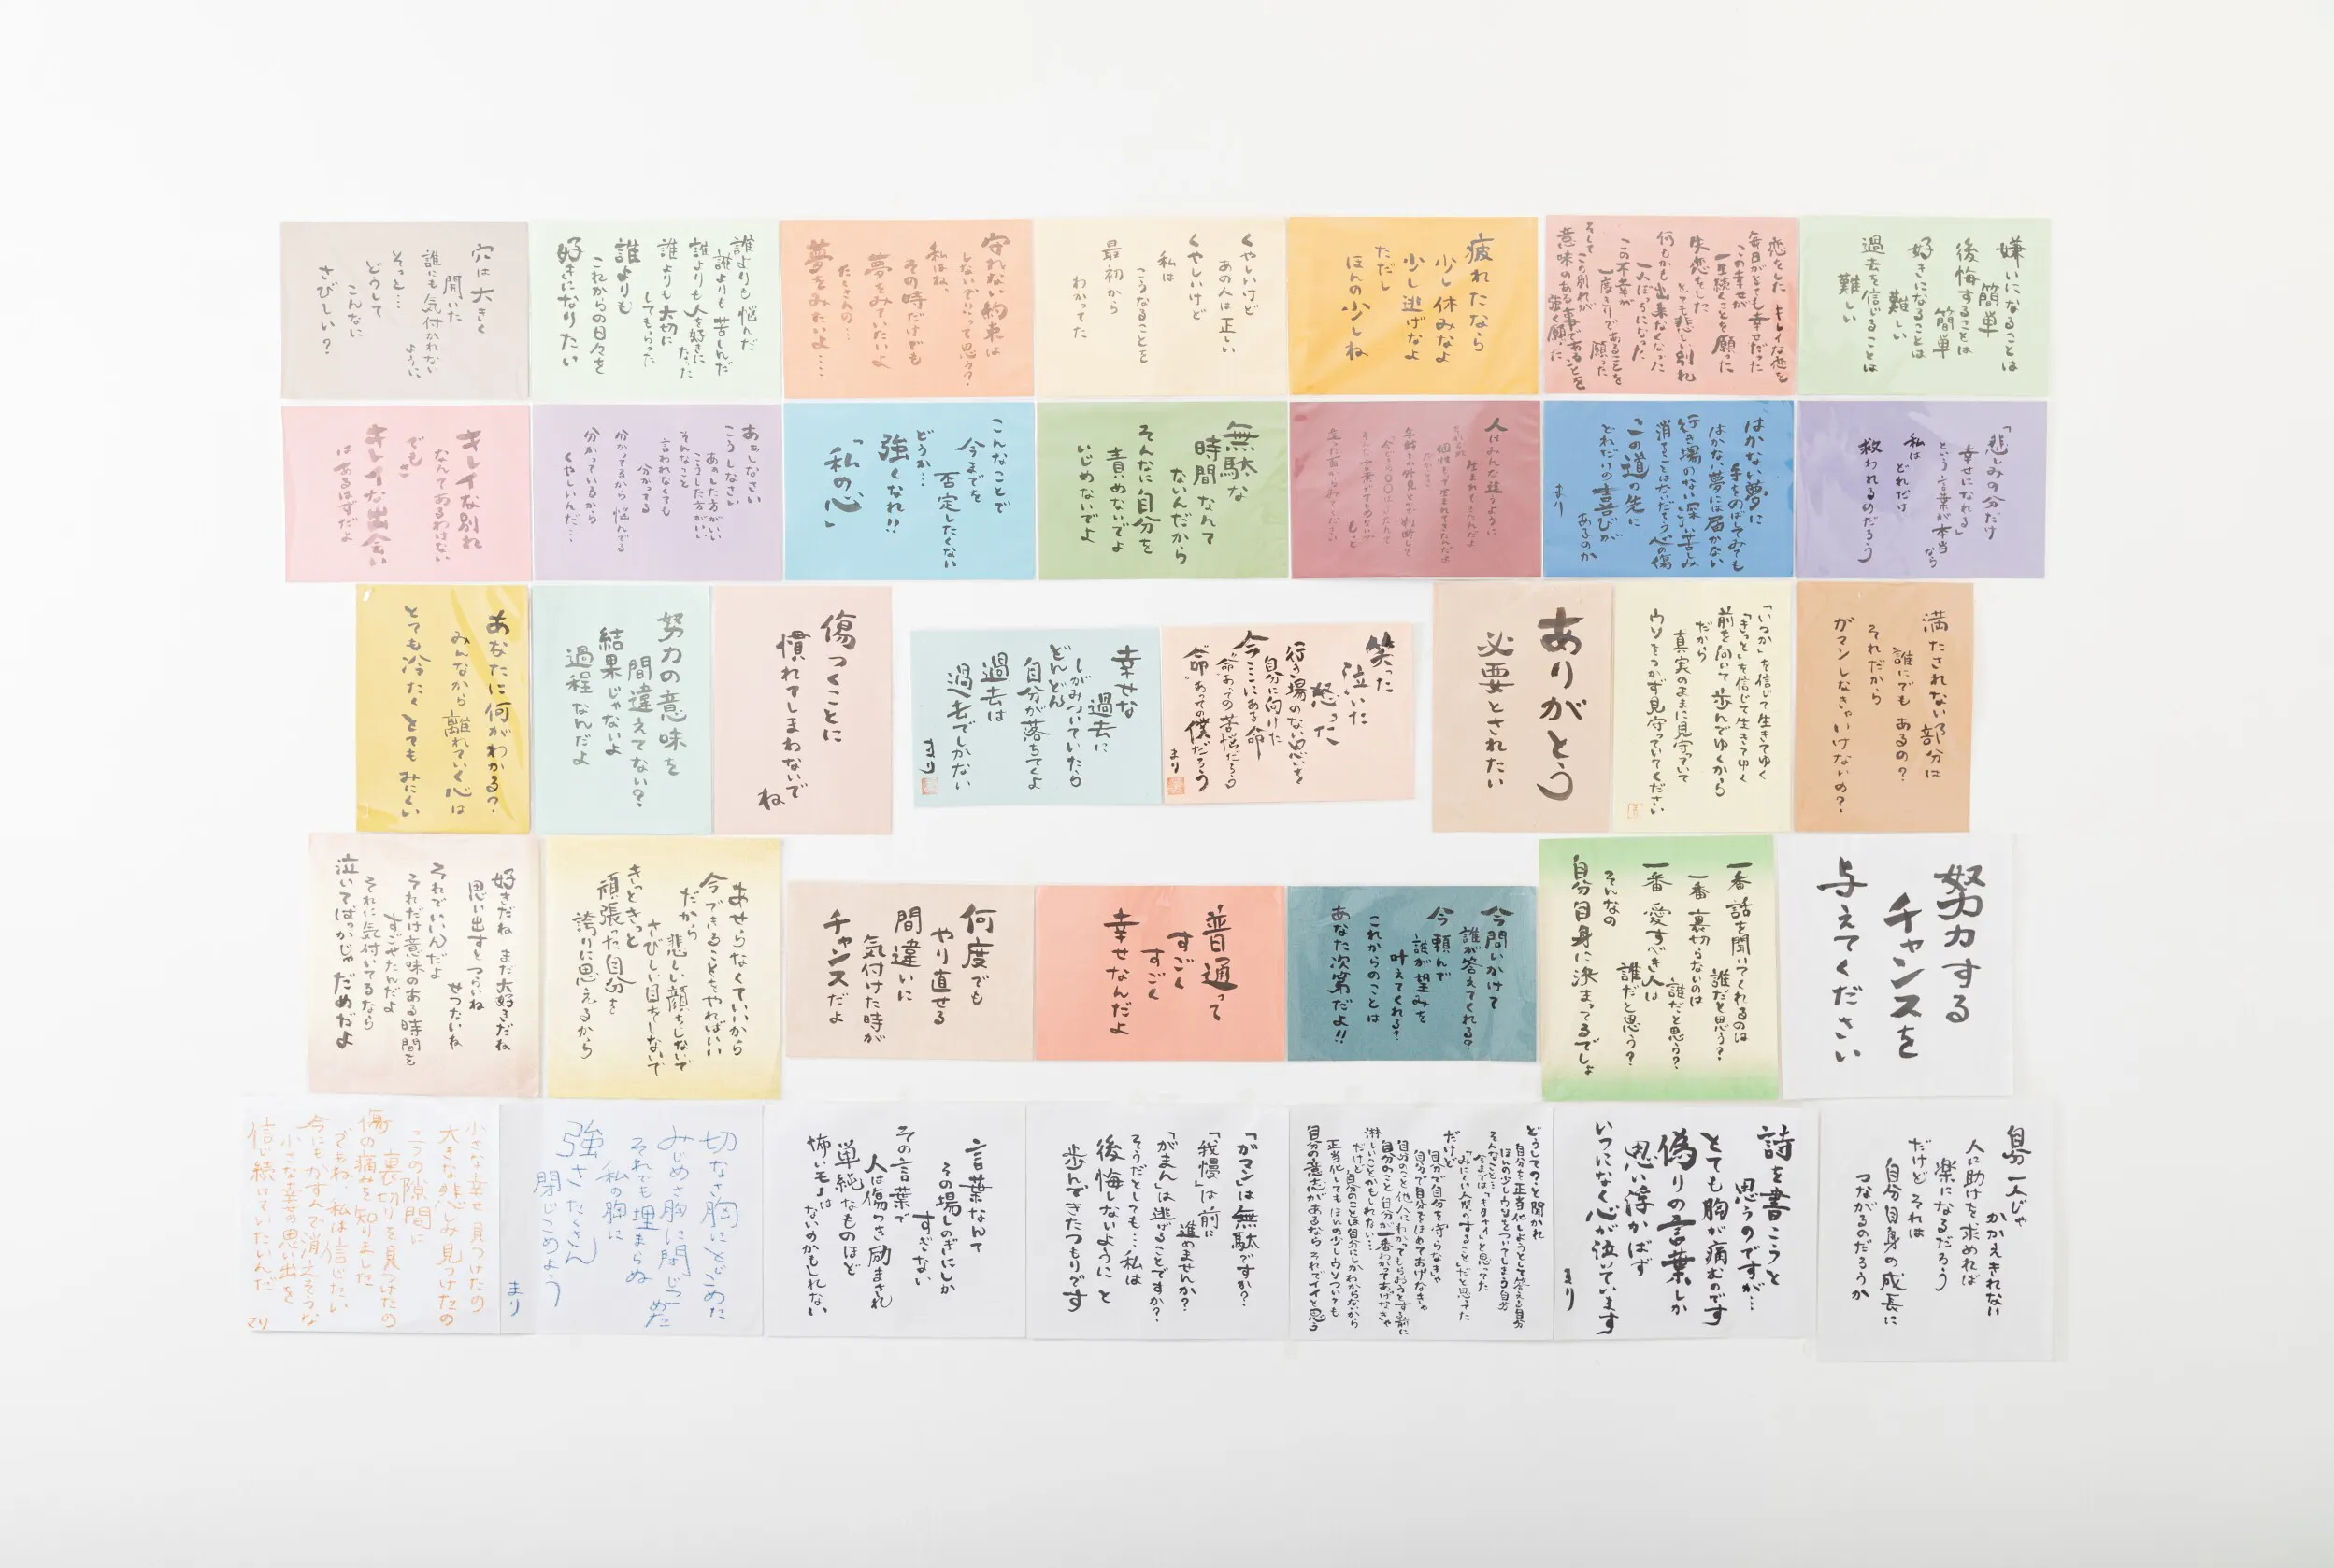 嫌いになることは
簡単
後悔することは
簡単
好きになることは
難しい
過去を信じることは
難しい
恋をした キレイな恋を
毎日がとても幸せだった
この幸せが
一生続くことを願った
失恋をした
とても悲しい別れ
何もかも出来なくなった
一人ぼっちになった
この不幸が
一度きりであることを
願った
そして この別れが
意味のある事であることを
強く願った
疲れたなら
少し休みなよ
少し逃げなよ
ただし
ほんの少しね
くやしいけど
あの人は正しい
くやしいけど
私は
こうなることを
最初から
わかってた
守れない約束は
しないでいいって思う?
私はね、
その時だけでも
夢をみていたいよ
たくさんの…
夢をみたいよ……
誰よりも悩んだ
誰よりも苦しんだ
誰よりも人を好きに
なった
誰よりも大切に
してもらった
誰よりも
これからの日々を
好きになりたい
穴は大きく
開いた
誰にも気付かれない
ように
そっと…
どうして
こんなに
さびしい?
「悲しみの分だけ
幸せになれる」
という言葉が本当
なら
私は
どれだけ
救われるのだろう
はかない夢に
手をのばしてみても
はかない夢には届かない
行き場のない深い苦しみ
消えてことはないだろう心の傷
この道の先に
どれだけの喜びが
あるのか
まり
人はみんな違うように
生まれてきたんだよ
無駄な
時間なんて
ないんだから
そんなに自分を
責めないでよ
いじめないでよ
こんなことで
今までを
否定したくない
どうか…
強くなれ!!
「私の心」
あぁしなさい
こうしなさい
あぁした方がいい
こうした方がいい
そんなこと
言われなくても
分かってる
分かってるから悩んでる
分かっているから
くやしいんだ…
キレイな別れ
なんてあるわけない
でも
キレイな出会い
はあるはずだよ
満たされない部分は
誰にでもあるの?
それだから
ガマンしなきゃいけないの?
「いつか」を信じて生きてゆく
「きっと」を信じて生きてゆく
前を向いて歩んでゆくから
だから
真実のままに見守っていて
ウソをつかず見守っていてください
ありがとう
必要とされたい
笑った
泣いた
怒った
行き場のない思いを
自分に向けた
今ここにある命
命あっての苦悩だろう
命あっての僕だろう
まり
幸せな
過去に
しがみついていたら
どんどん
自分が落ちてくよ
過去は
過去でしかない
まり
傷つくことに
慣れてしまわないで
ね
努力の意味を
間違えてない?
結果じゃないよ
過程なんだよ
あなたに何がわかる?
みんなから離れていく心は
とても冷たくとてもみにくい
努力する
チャンスを
与えてください
一番話を聞いてくれるのは
誰だと思う?
一番裏切らないのは
誰だと思う?
一番愛すべき人は
誰だと思う?
そんなの
自分自身に決まってるでしょ
今問いかけて
誰が答えてくれる?
今頼んで
誰が望みを
叶えてくれる?
これからのことは
あなた次第だよ!!
普通って
すごく
すごく
幸せなんだよ
何度でも
やり直せる
間違いに
気付けた時が
チャンスだよ
あせらなくていいから
今できることをやればいい
だから
悲しい顔をしないで
さびしい目をしないで
きっときっと
頑張った自分を
誇りに思えるから
好きだね まだ大好きだね
思い出すとつらいね
せつないね
それでいいんだよ
それだけ意味のある時間を
すごせたんだよ
それに気付いてるなら
泣いてばっかじゃだめだよ
自分一人じゃ
かかえきれない
人に助けを求めれば
楽になるだろう
だけどそれは
自分自身の成長に
つながるのだろうか
詩を書こうと
思うのですが…
とても胸が痛むのです
偽りの言葉しか
思い浮かばず
いつになく心が泣いています
まり
どうしてのこと聞かれ
自分を正当化しようとして答える自分
ほんの少しウソをついてしまう自分
そんなこと…
今までは「キタナイ」と思ってた
「みにくい人間のすること」だと思ってた
だけど
自分で自分を守らなきゃ
自分で自分をほめてあげなきゃ
自分のこと他人にわかってもらおうとする前に
自分のこと自分が一番わかってあげなきゃ
淋しいことかもしれない…
だけど
自分のことは自分にしかわからないから
正当化してもほんの少しウソついても
自分の意志があるならそれでイイと思う
「ガマン」は無駄ですか?
「我慢」は前に
進めませんか?
「がまん」は逃げることですか?
そうだとしても…私は
後悔しないようにと
歩んできたつもりです
言葉なんて
その場しのぎにしか
すぎない
その言葉で
人は傷つき励まされ
単純なものほど
怖いモノは
ないのかもしれない
切なさ胸にとじこめた
みじめさ胸に閉じこ
めた
それでも埋まらぬ
私の胸に
強さたくさん
閉じこめよう
まり
小さな幸せ見つけたの
大きな悲しみ見つけたの
二つの隙間に
裏切りを見つけたの
傷の痛みを知りました
でもね、私は信じたい
今にもかすんで消えそうな
小さな幸せの思い出を
信じ続けていたいんだ
マリ